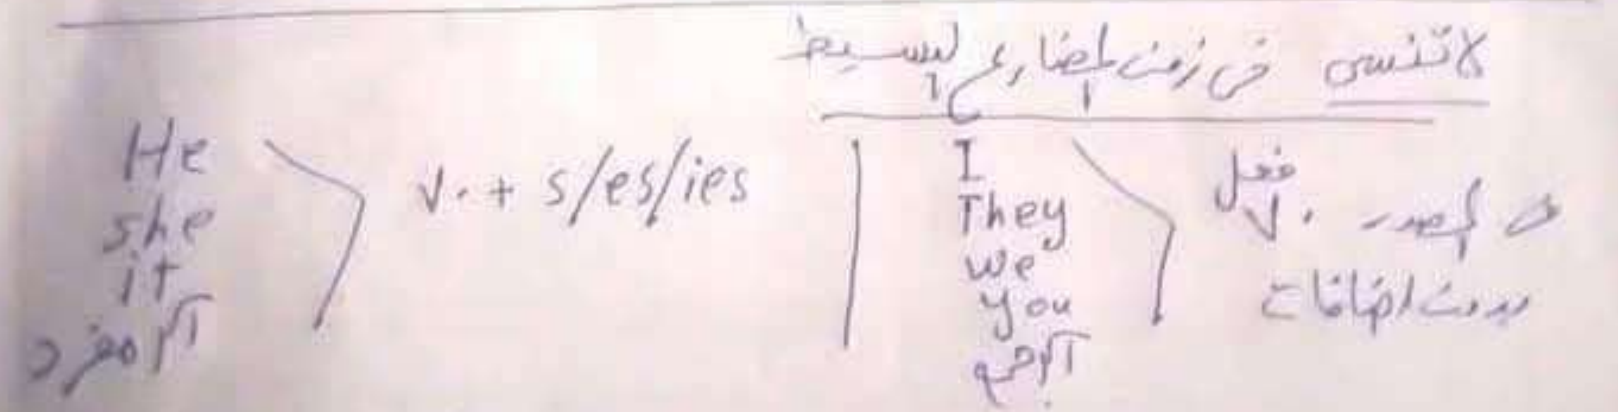 لا تنسى في زمن المضارع البسيط
He
she
it
اسم مفرد
v. + s/es/ies
I
They
we
you
اسم جمع
فعل
v. في المصدر
بدون اضافات